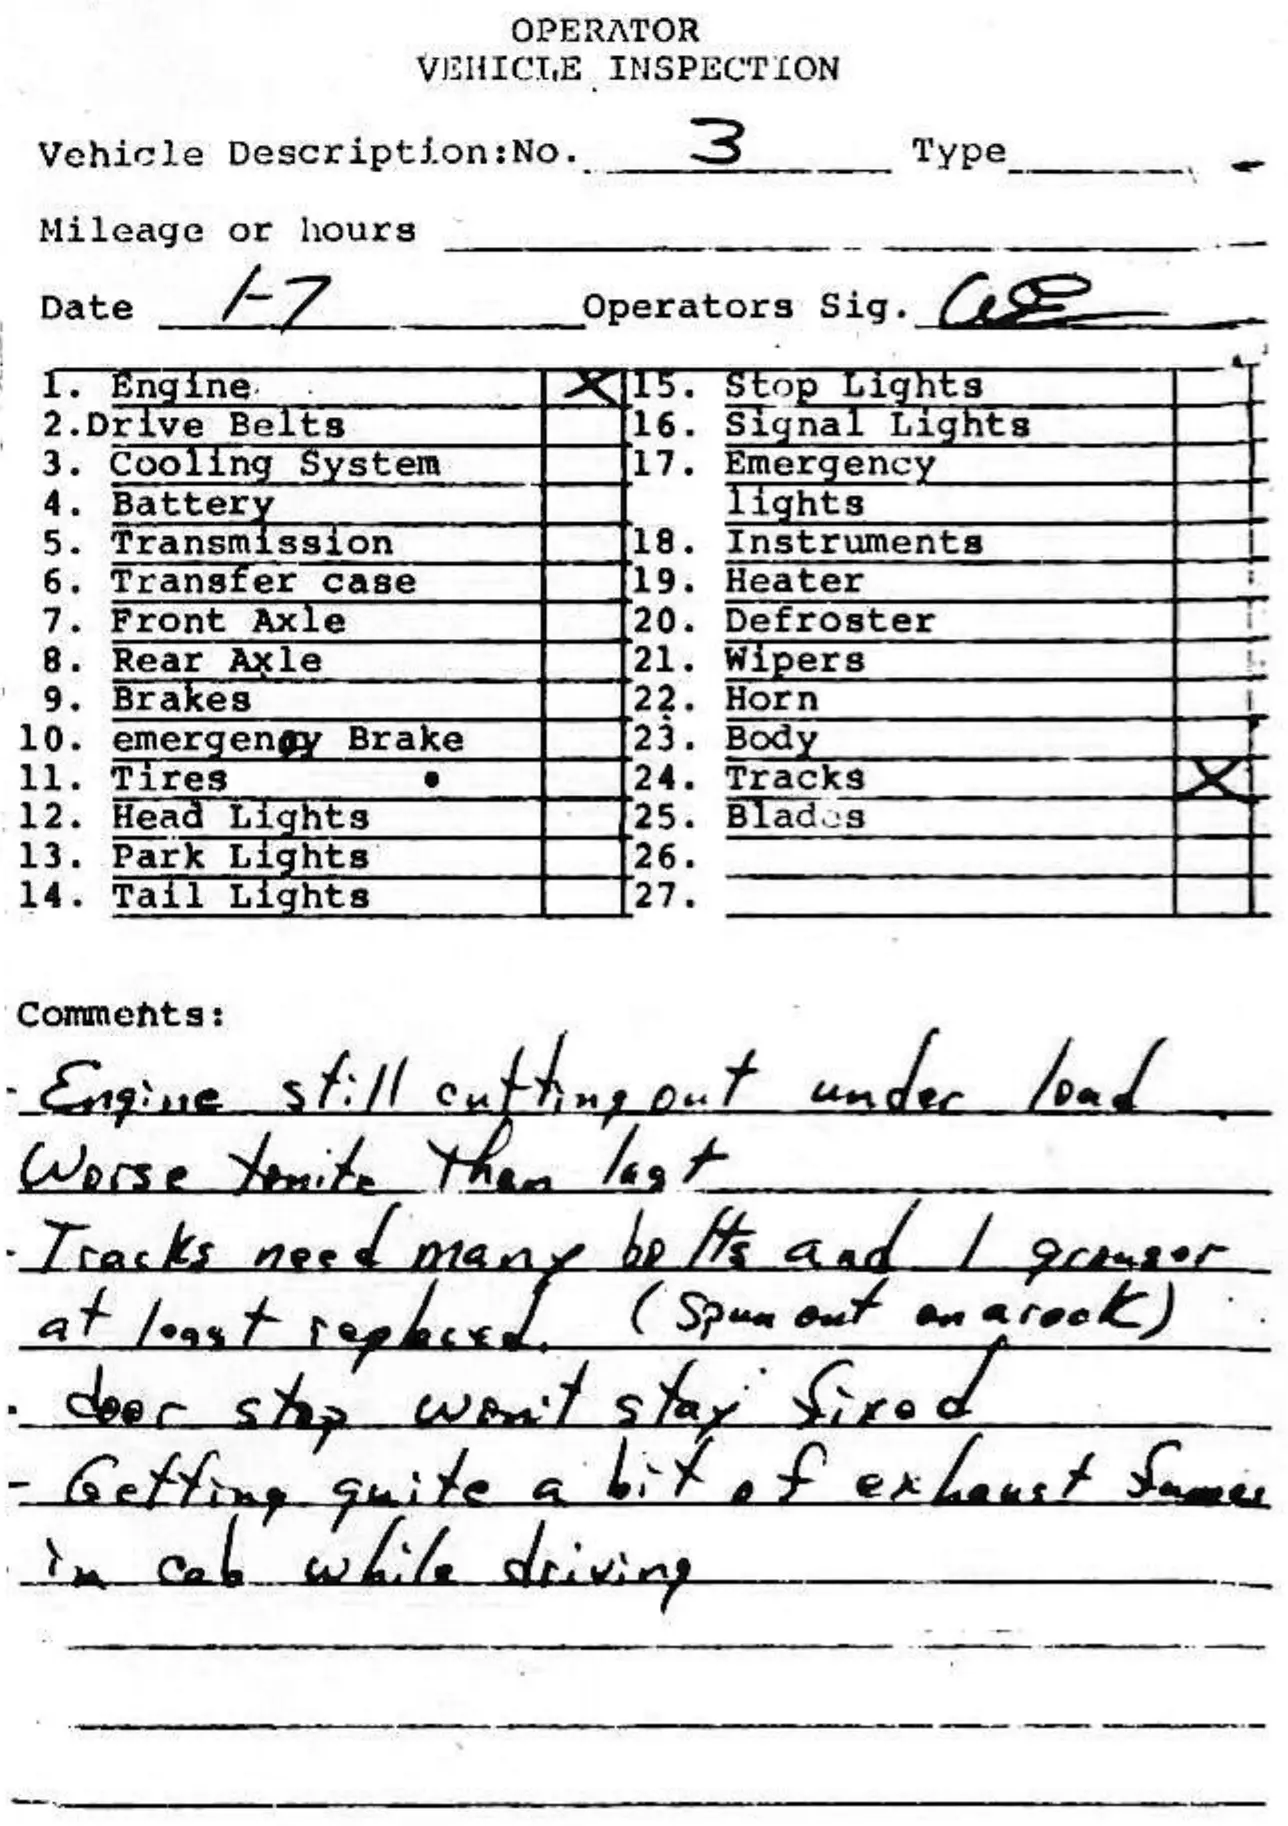 OPERATOR
VEHICLE INSPECTION
Vehicle Description:No. 3 Type
Mileage or hours
Date 1-7 Operators Sig.
1. Engine X 15. Stop Lights
2.Drive Belts 16. Signal Lights
3. Cooling System 17. Emergency
4. Battery lights
5. Transmission 18. Instruments
6. Transfer case 19. Heater
7. Front Axle 20. Defroster
8. Rear Axle 21. Wipers
9. Brakes 22. Horn
10. emergency Brake 23. Body
11. Tires 24. Tracks X
12. Head Lights 25. Blades
13. Park Lights 26.
14. Tail Lights 27.
Comments:
- Engine still cutting out under load
Worse tonite than last
- Tracks need many bolts and 1 grouser
at least replaced. (Spun out on a rock)
- door stop won't stay fixed
- Getting quite a bit of exhaust fumes
in cab while driving